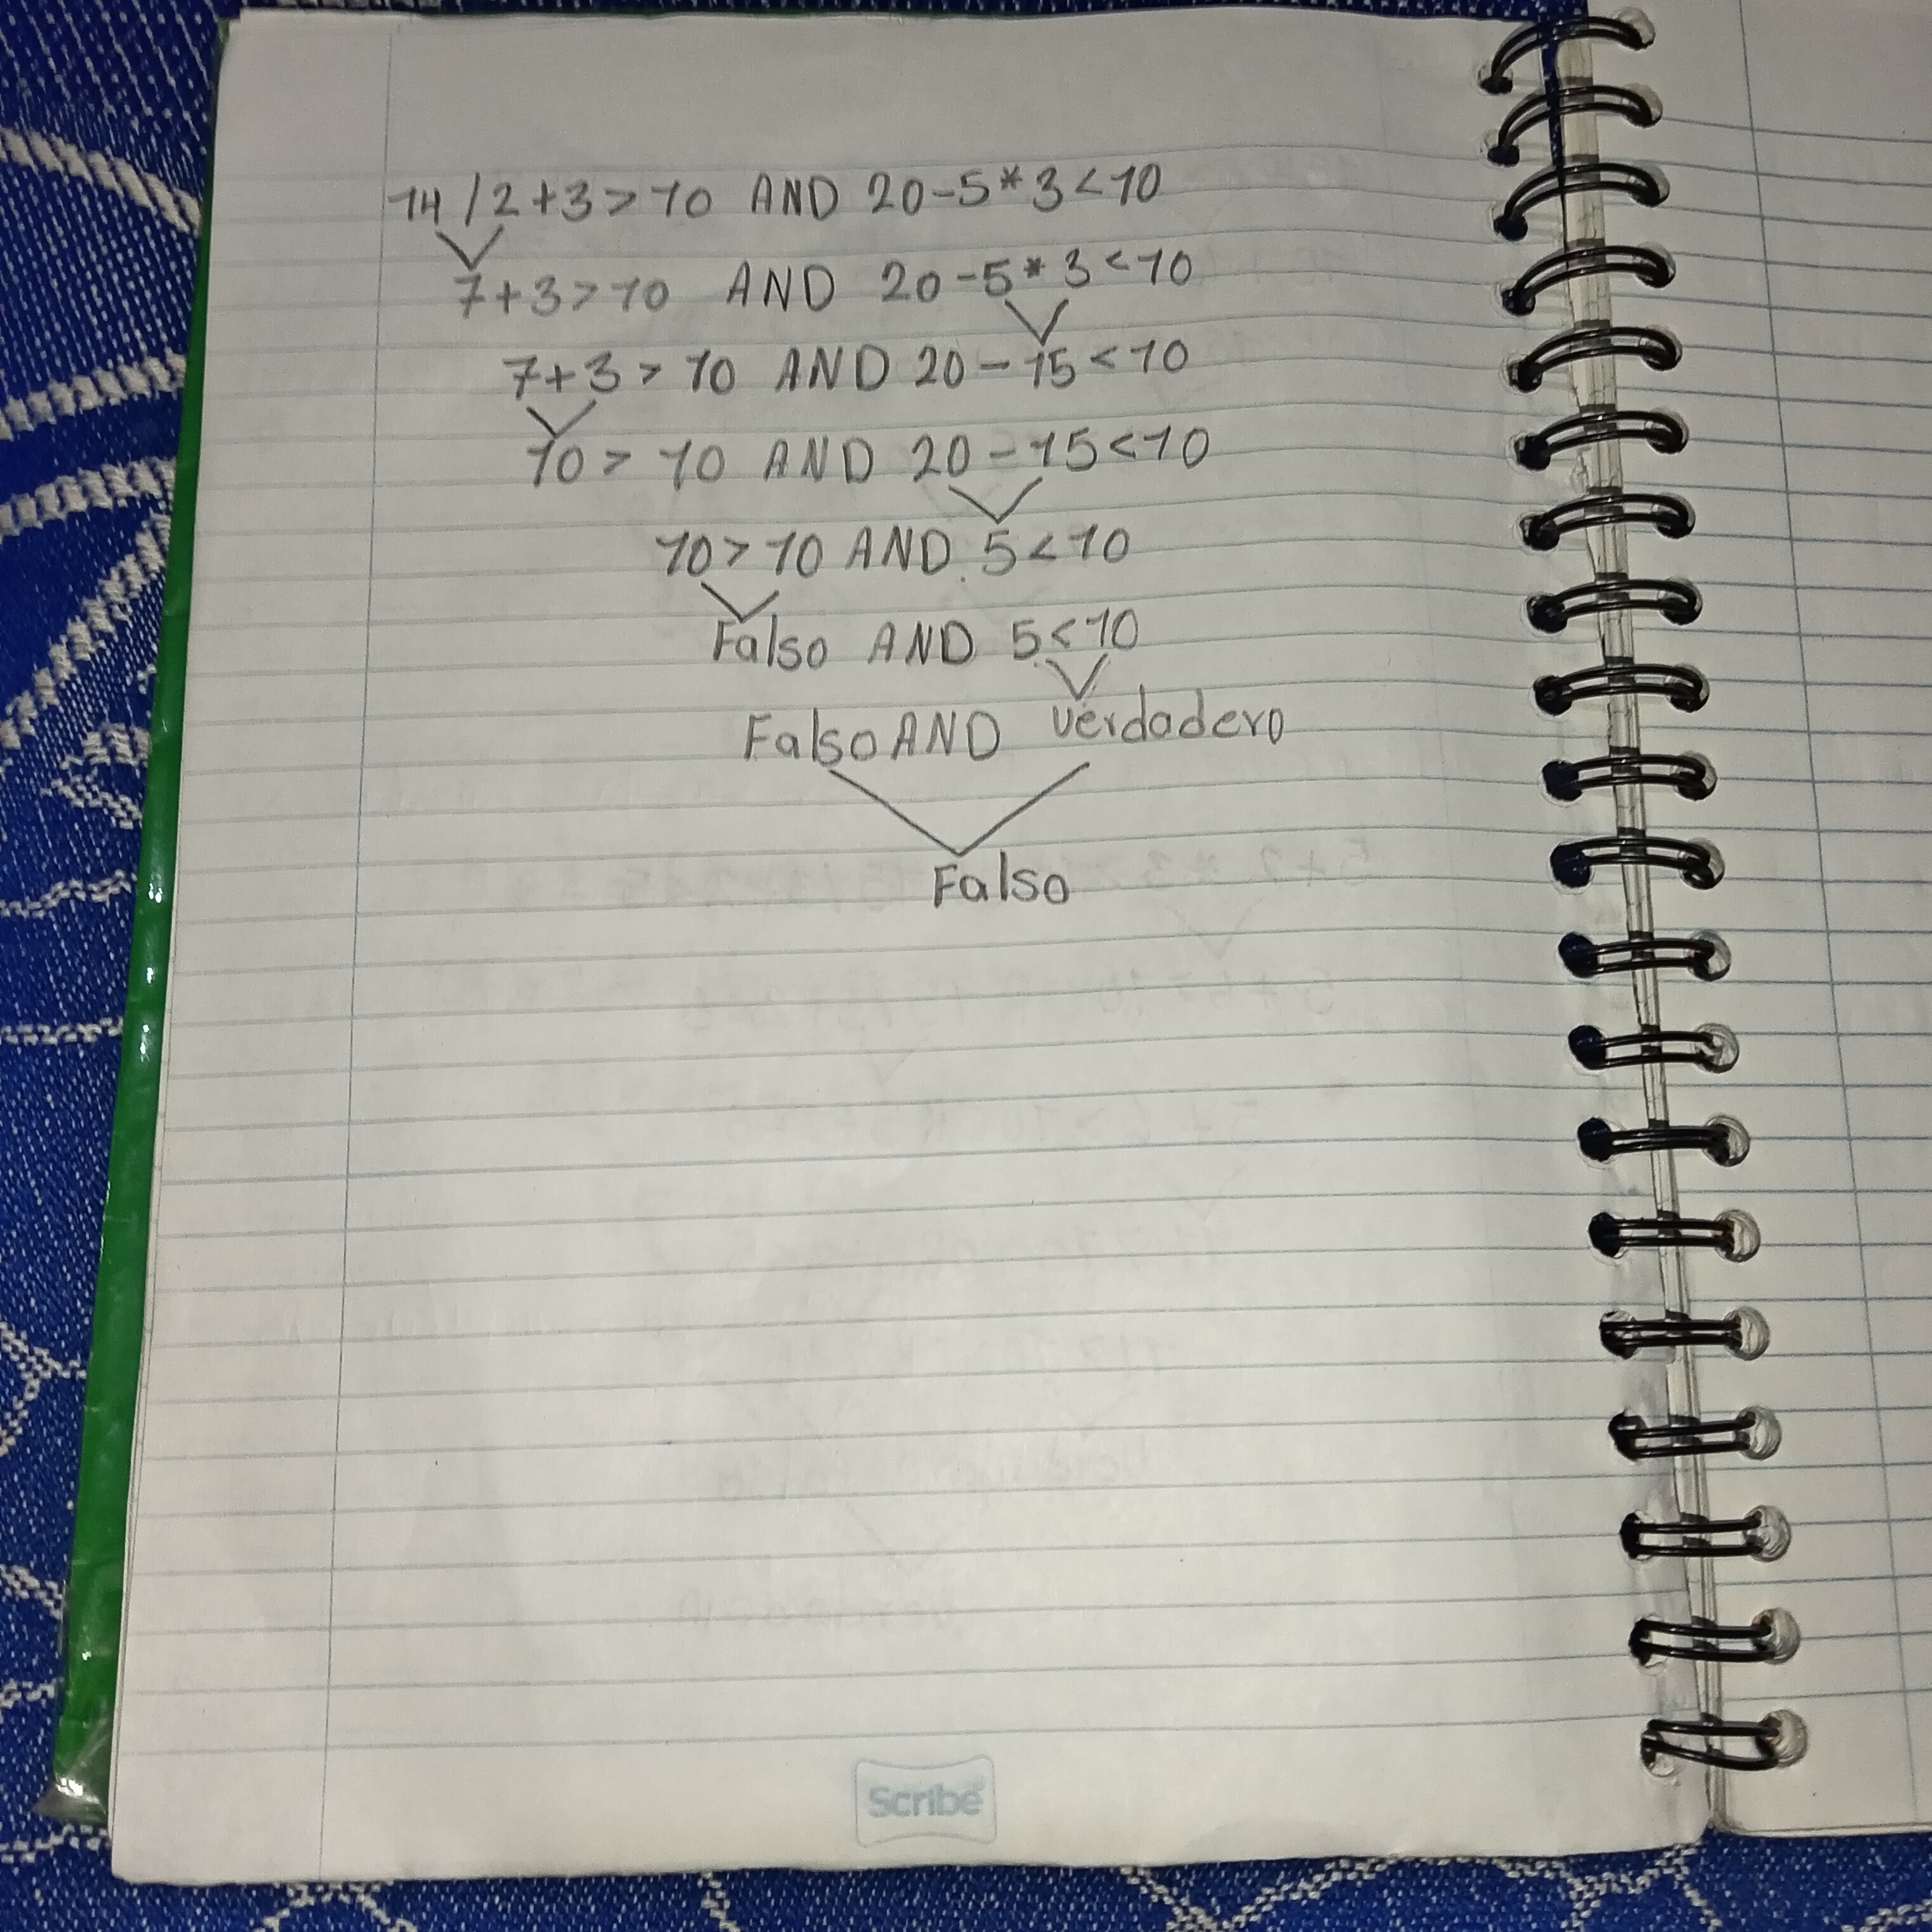 14/2+3>10 AND 20-5*3<10
7+3>10 AND 20-5*3<10
7+3>10 AND 20-15<10
10>10 AND 20-15<10
10>10 AND 5<10
Falso AND 5<10
Falso AND verdadero
Falso
Scribe